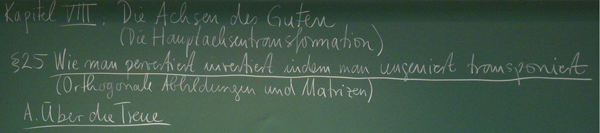 Kapitel VIII: Die Achsen des Guten
(Die Hauptachsentransformation)
§25 Wie man pervertiert invertiert indem man ungeniert transponiert
(Orthogonale Abbildungen und Matrizen)
A. Über die Treue